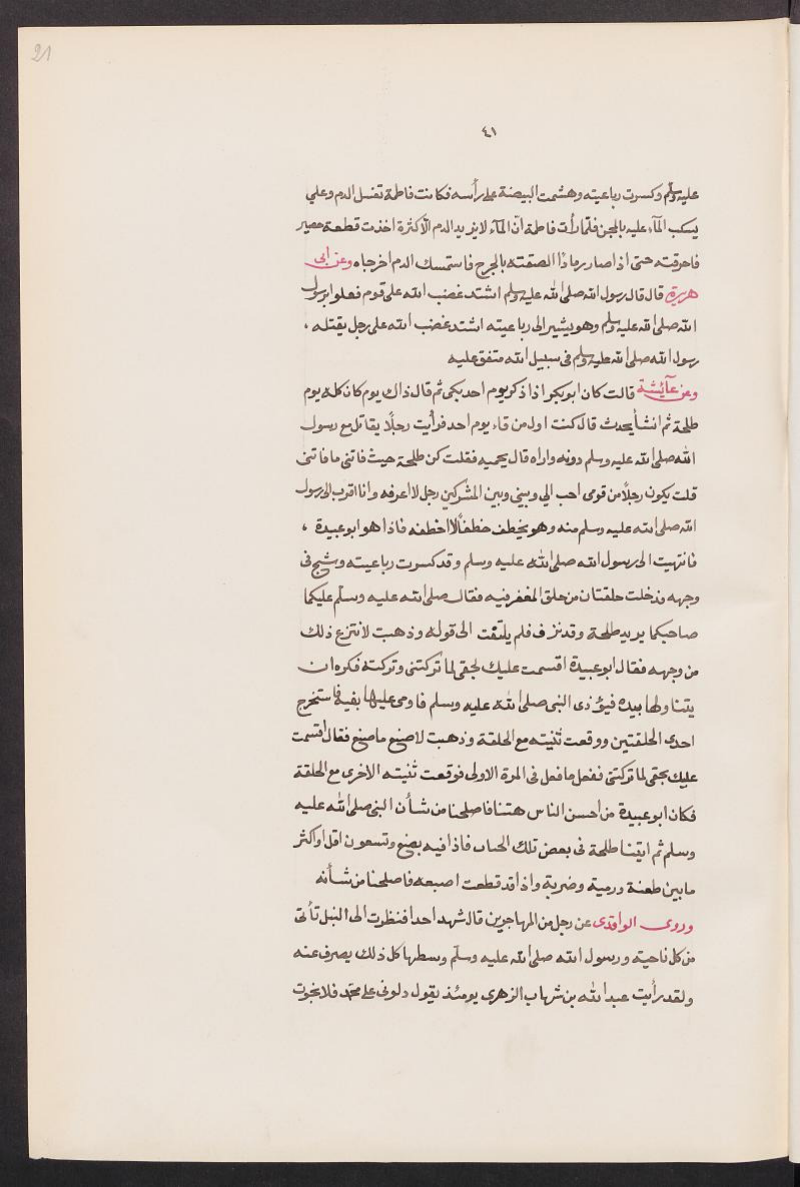 21
٤١
عليه وسلم وكسرت رباعيته وهشمت البيضة على رأسه فكانت فاطمة تغسل الدم وعلي
يسكب المآء عليه بالمجن فلما رأت فاطمة انّ المآء لا يزيد الدم الّا كثرة اخذت قطعة حصير
فاحرقته حتى اذا صار رماذا الصقته بالجرح فاستمسك الدم اخرجاه وعن ابى
هريرة قال قال رسول الله صلى الله عليه وسلم اشتد غضب الله على قوم فعلوا برسول
الله صلى الله عليه وسلم وهو يشير الى رباعيته اشتد غضب الله على رجل يقتله ،
رسول الله صلى الله عليه وسلم فى سبيل الله متفق عليه
وعن عآئيشة قالت كان ابو بكر اذا ذكر يوم احد بكى ثم قال ذاك يوم كان كله يوم
طلحة ثم انشأ يحدث قال كنت اول من فاء يوم احد فرأيت رجلًا يقاتل مع رسول
الله صلى الله عليه وسلم دونه واراه قال يحميه فقلت كن طلحة حيث فاتنى ما فاتنى
قلت يكون رجلًا من قومى احب الي وبينى وبين المشركين رجل لا اعرفه وانا اقرب الى رسول
الله صلى الله عليه وسلم منه وهو يخطف خطفاً لا اخطفه فاذا هو ابو عبيدة ،
فانتهيت الى رسول الله صلى الله عليه وسلم وقد كسرت رباعيته وشج فى
وجهه ودخلت حلقتان من حلق المغفر فيه فقال صلى الله عليه وسلّم عليكما
صاحبكما يريد طلحة وقد نزف فلم يلتفت الى قوله وذهبت لانتزع ذلك
من وجهه فقال ابو عبيدة اقسمت عليك لحقى لما تركتنى وتركته فكره ان
يتناولها بيده فيؤذى النبى صلى الله عليه وسلم فاومى عليها بفيه فاستخرج
احدى الحلقتين ووقعت ثنيته مع الحلقة وذهبت لاصنع ما صنع فقال اقسمت
عليك بحقى لما تركتنى ففعل ما فعل فى المرة الاولى فوقعت ثنيته الاخرى مع الحلقة
فكان ابو عبيدة من احسن الناس هتنا فاصلحنا من شأن النبى صلى الله عليه
وسلم ثم اتينا طلحة فى بعض تلك الحساب فاذا فيه بضع وتسعون اقل او اكثر
ما بين طعنة ورمية وضربة واذا قد قطعت اصبعه فاصلحنا من شأنه
وروى الواقدى عن رجل من المهاجرين قال شهد احدا فنظرت الى النبل تأتى
من كل ناحية ورسول الله صلى الله عليه وسلّم وسطها كل ذلك يصرف عنه
ولقد رأيت عبد الله بن شهاب الزهرى يومئذ يقول دلونى على محمّد فلا نجوت